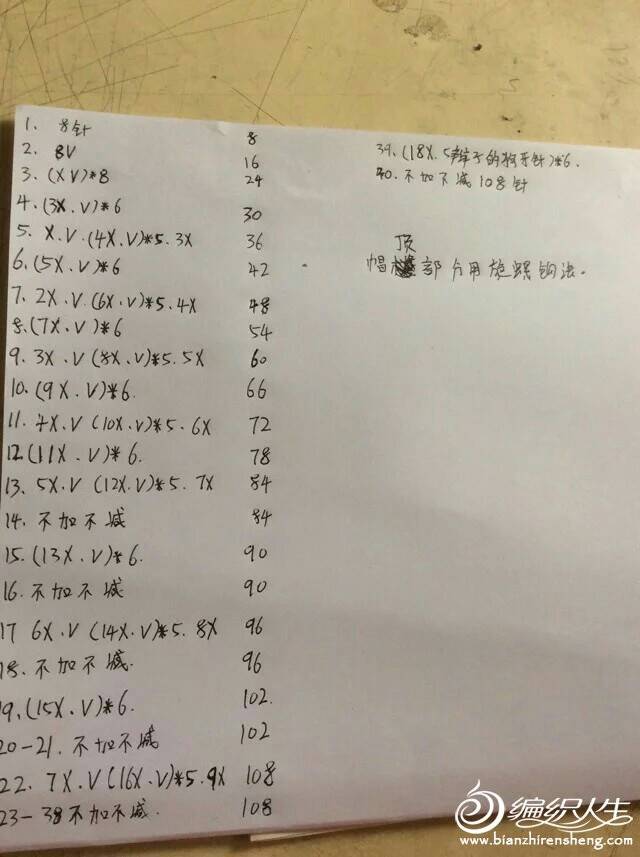 1. 8针 8
2. 8V 16
3. (XV)*8 24
4. (3X.V)*6 30
5. X.V.(4X.V)*5.3X 36
6. (5X.V)*6 42
7. 2X.V.(6X.V)*5.4X 48
8. (7X.V)*6 54
9. 3X.V(8X.V)*5.5X 60
10. (9X.V)*6. 66
11. 4X.V(10X.V)*5.6X 72
12. (11X.V)*6. 78
13. 5X.V(12X.V)*5.7X 84
14. 不加不减 84
15. (13X.V)*6. 90
16. 不加不减 90
17 6X.V(14X.V)*5.8X 96
18. 不加不减. 96
19. (15X.V)*6. 102.
20-21. 不加不减 102
22. 7X.V(16X.V)*5.9X 108
23-38不加不减. 108
39. (18X.5辫子的狗牙针)*6.
40. 不加不减108针
帽顶部分用旋螺钩法.
编织人生
www.bianzhirensheng.com